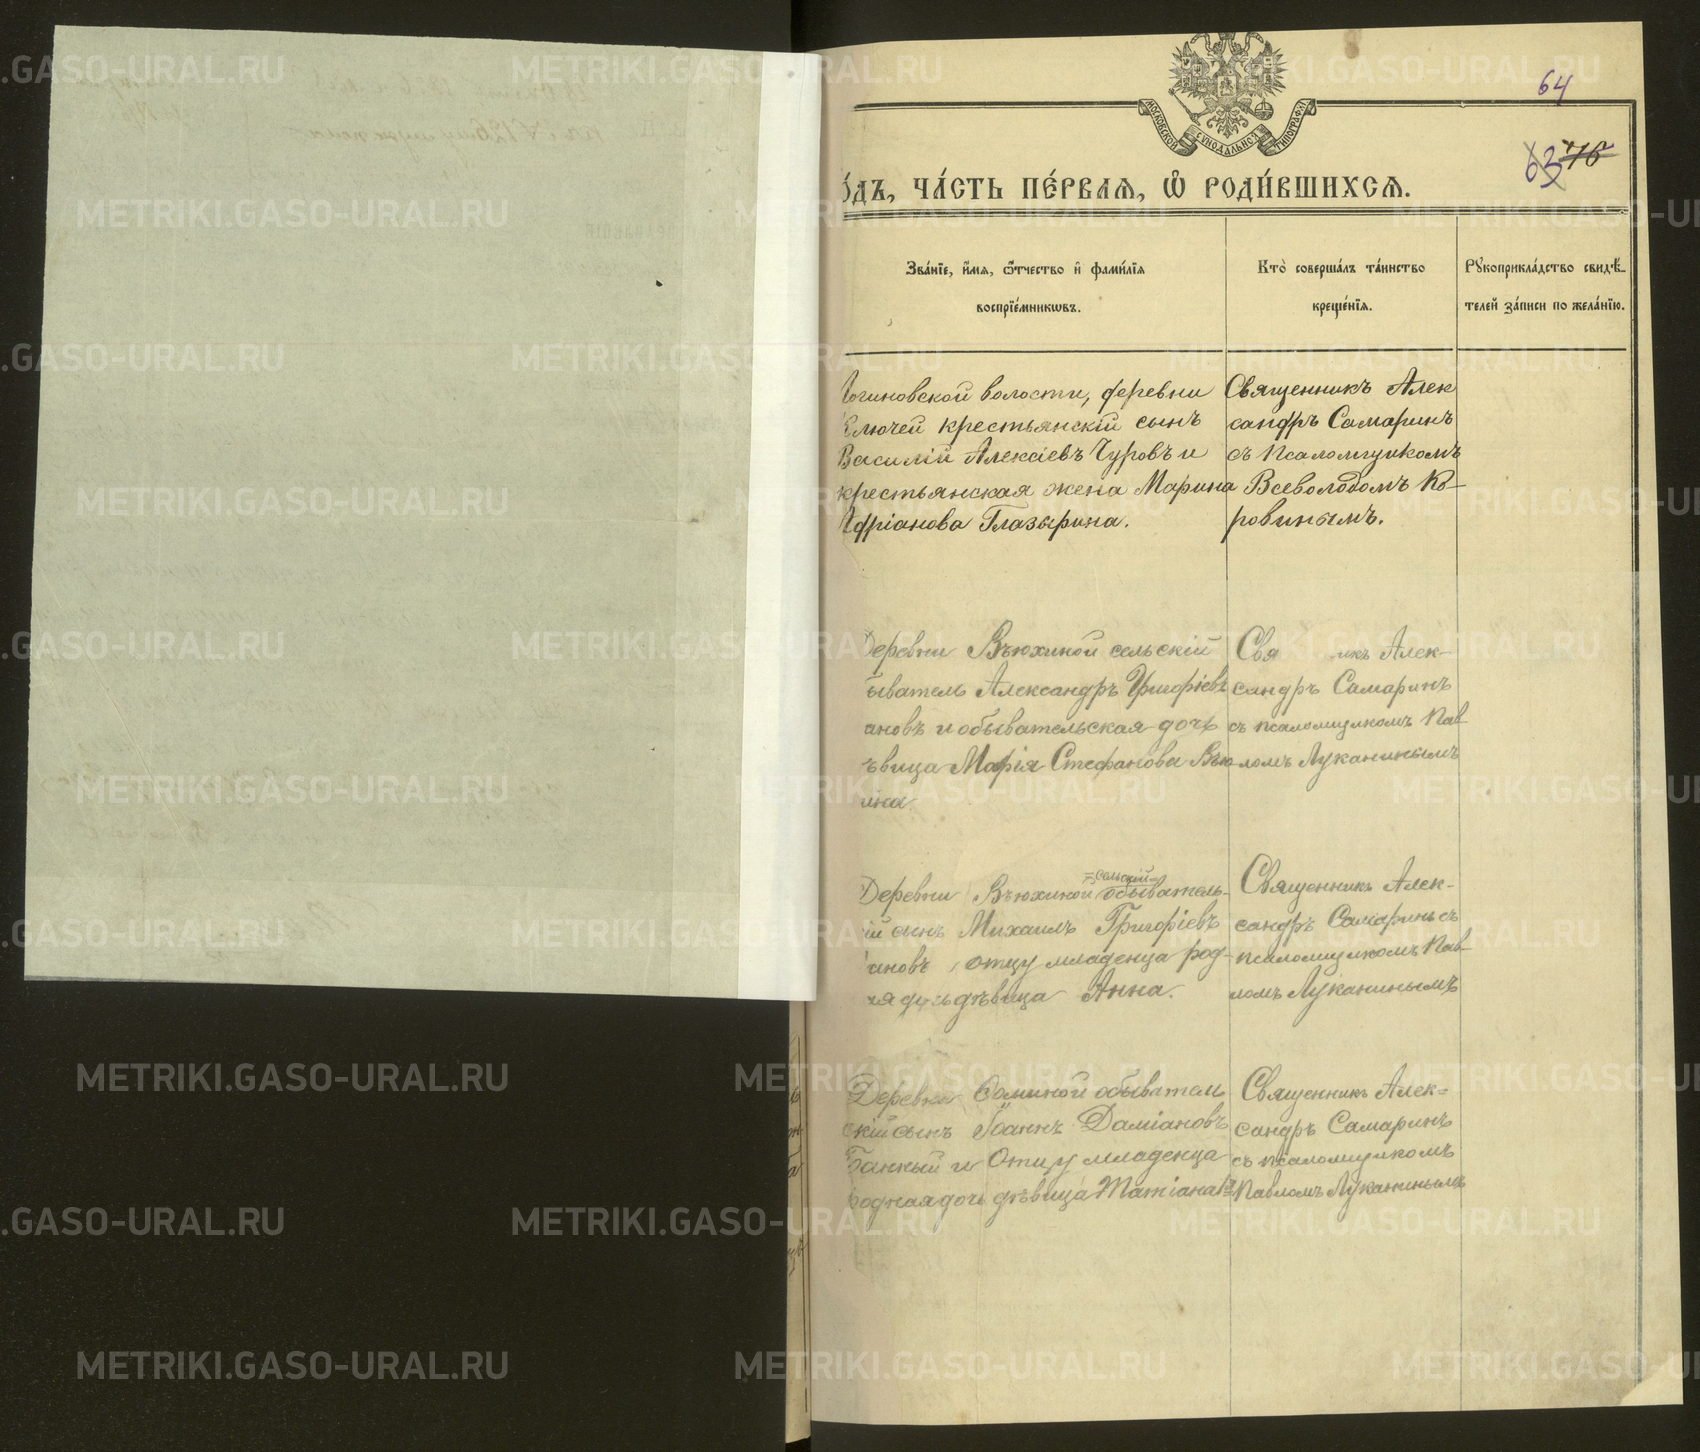 64
63 76
МОСКОВСКОЙ СУНОДАЛЬНОЙ ТИПОГРАФІИ
о́дъ, ча́сть пе́рваѧ, ѡ҆ роди́вшихсѧ.
Зва́нїе, и҆́мѧ, ѻ҆́тчество и҆ фами́лїѧ
воспрїе́мникѡвъ.
Кто̀ соверша́лъ та́инство
креще́нїѧ.
Рꙋкоприкла́дство свидѣ́-
телей за́писи по жела́нїю.
Логиновской волости, деревни
Ключей крестьянскій сынъ
Василій Алексіевъ Чуровъ и
крестьянская жена Марина
Адріанова Глазырина.
Священникъ Алек
сандръ Самаринъ
съ псаломщикомъ
Всеволодомъ Ко-
ровинымъ.
Деревни Вьюхиной сельскій
быватель Александръ Григоріевъ
ановъ и обывательская дочь
ѣвица Марія Стефанова Вью
ина.
Свя икъ Алек-
сандръ Самаринъ
съ псаломщикомъ Пав
ломъ Луканинымъ
Деревни Вьюхиной сельскій обыватель-
ій сынъ Михаилъ Григоріевъ
ановъ отцу младенца род-
ая дочь дѣвица Анна.
Священникъ Алек-
сандръ Самаринъ съ
псаломщикомъ Пав-
ломъ Луканинымъ
Деревни обыватель
скій сынъ Іоаннъ Даміановъ
и отцу младенца
родная дочь дѣвица Татіана
Священникъ Алек-
сандръ Самаринъ
съ псаломщикомъ
Павломъ Луканинымъ
METRIKI.GASO-URAL.RU